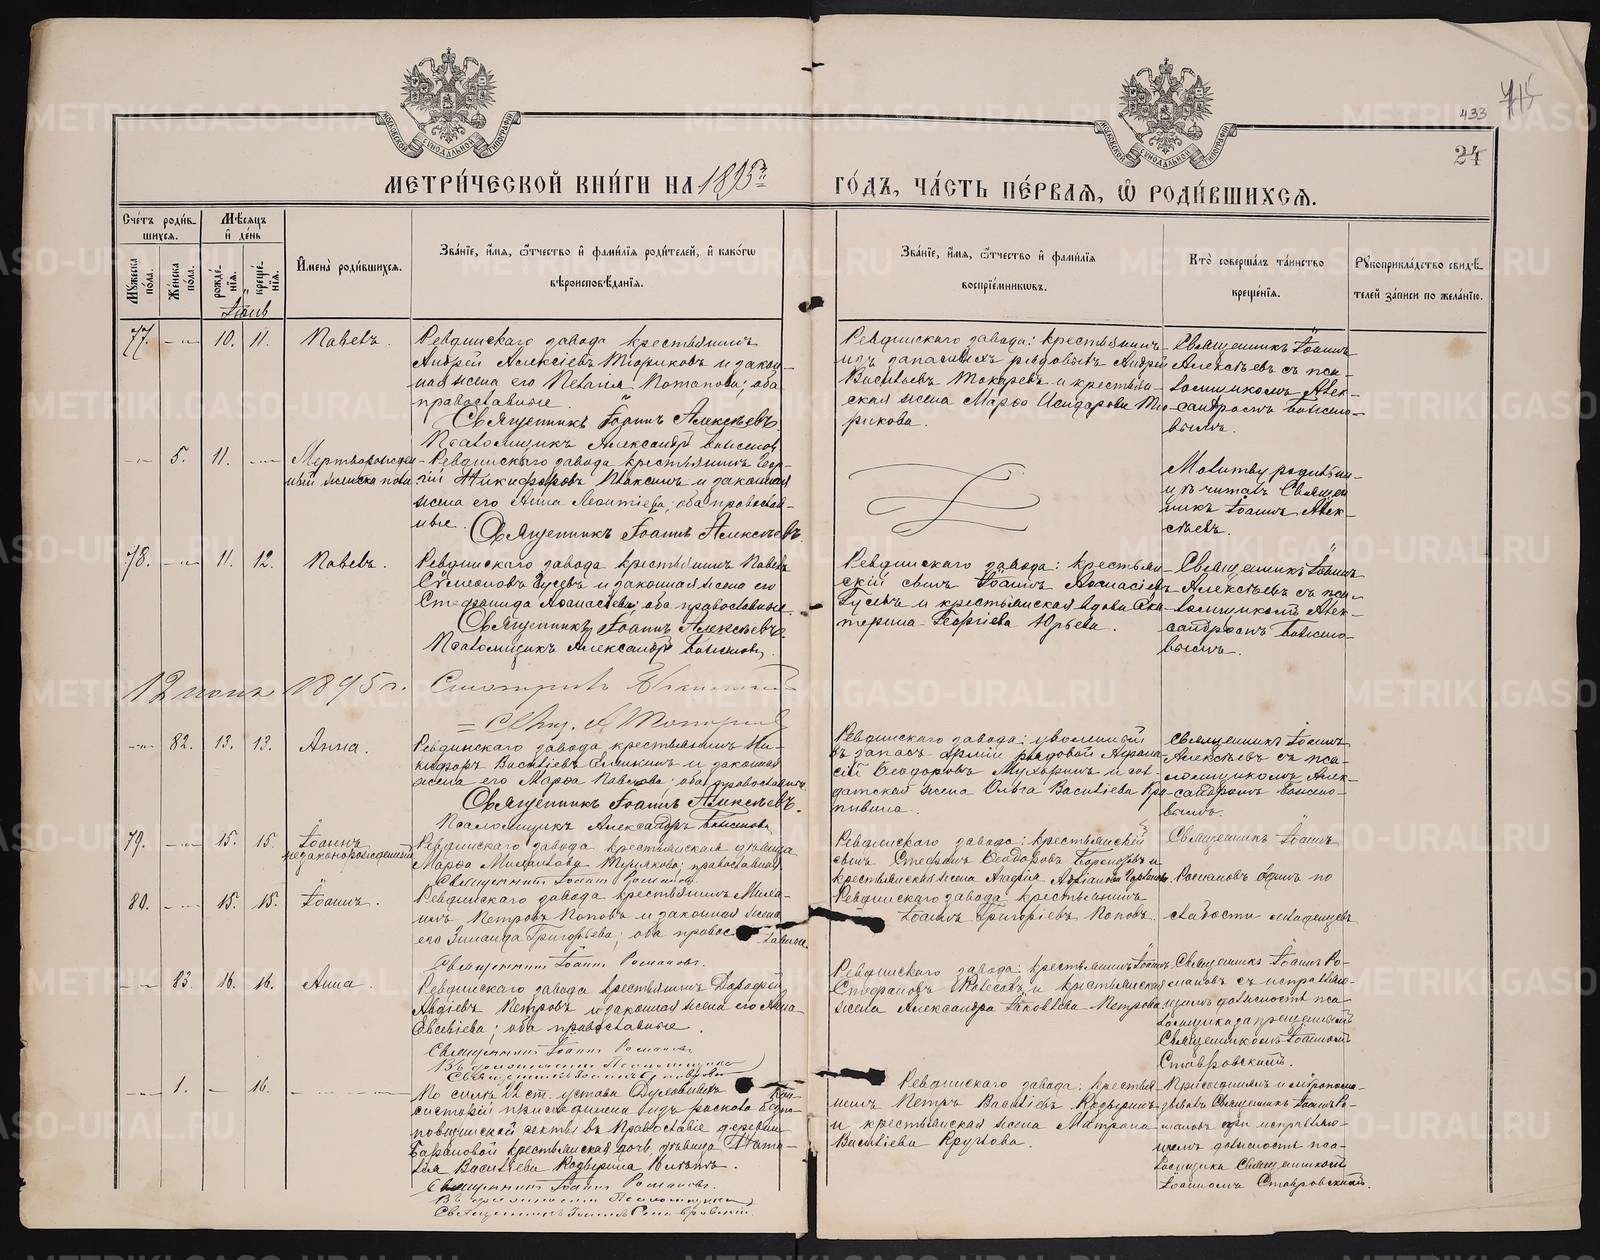 433
24
МЕТРИ́ЧЕСКОЙ КНИ́ГИ НА 1895й
ГО́ДЪ, ЧА́СТЬ ПЕ́РВАЯ, Ѽ РОДИ́ВШИХСЯ.
Сче́тъ роди́вшихся.
Мѣ́сяцъ и́ де́нь
И҆мена̀ роди́вшихся.
Зва́нїе, и҆́мя, ѻ҆́тчество и҆ фами́лїя роди́телей, и҆ како́гѡ вѣроисповѣ́данїя.
Зва́нїе, и҆́мя, ѻ҆́тчество и҆ фами́лїя воспрїе́мниковъ.
Кто̀ соверша́лъ та́инство креще́нїя.
Рукоприкла́дство свидѣ́телей за́писи по жела́нїю.
Мужеска по́ла.
Же́нска по́ла.
рожде́нїя.
креще́нїя.
Іюнь
77. 10. 11. Павелъ.
Ревдинскаго завода крестьянинъ
Андрей Алексіевъ Тюриковъ и закон-
ная жена его Пелагія Потапова; оба
православные.
Священникъ Іоаннъ Алексѣевъ
Псаломщикъ Александръ
Ревдинскаго завода: крестьянинъ
изъ запасныхъ рядовыхъ Андрей
Васильевъ Токаревъ и крестьян-
ская жена Марѳа Исидорова Тю-
рикова.
Священникъ Іоаннъ
Алексѣевъ съ пса-
ломщикомъ Алек-
сандромъ
5. 11. Мертворожден-
ный женска пола
Ревдинскаго завода крестьянинъ Геор-
гій Никифоровъ и законная
жена его Анна Леонтіева; оба православ-
ные.
Священникъ Іоаннъ Алексѣевъ
Молитву родитель-
ницѣ читалъ Священ-
никъ Іоаннъ Алек-
сѣевъ.
78. 11. 12. Павелъ.
Ревдинскаго завода крестьянинъ Павелъ
Сѵмеоновъ Гусевъ и законная жена его
Стефанида Аѳанасіева; оба православные.
Священникъ Іоаннъ Алексѣевъ
Псаломщикъ Александръ
Ревдинскаго завода: крестьян-
скій сынъ Іоаннъ Аѳанасіевъ
Гусевъ и крестьянская вдова Ека-
терина Георгіева Юрьева.
Священникъ Іоаннъ
Алексѣевъ съ пса-
ломщикомъ Алек-
сандромъ
12 іюня 1895 г.
82. 13. 13. Анна.
Ревдинскаго завода крестьянинъ Ни-
кифоръ Васильевъ и законная
жена его Марѳа Павлова; оба православные.
Священникъ Іоаннъ Алексѣевъ.
Псаломщикъ Александръ
Ревдинскаго завода: уволенный
въ запасъ арміи рядовой Аѳана-
сій Ѳеодоровъ Мухоринъ и сол-
датская жена Ольга Васильева
Священникъ Іоаннъ
Алексѣевъ съ пса-
ломщикомъ Алек-
сандромъ
79. 15. 15. Іоаннъ
незаконорожденный
Ревдинскаго завода крестьянская дѣвица
Марѳа Михаилова; православная
Священникъ Іоаннъ Романовъ.
Ревдинскаго завода: крестьянскій
сынъ Стефанъ Ѳеодоровъ и
крестьянская жена
Священникъ Іоаннъ
Романовъ одинъ по
слабости младенцевъ
80. 15. 15. Іоаннъ.
Ревдинскаго завода крестьянинъ Миха-
илъ Петровъ Поповъ и законная жена
его Зинаида Григорьева; оба православные.
Священникъ Іоаннъ Романовъ.
Ревдинскаго завода: крестьянинъ
Іоаннъ Григоріевъ Поповъ.
83. 16. 16. Анна.
Ревдинскаго завода крестьянинъ Дороѳей
Авдіевъ Петровъ и законная жена его Анна
Евсевіева; оба православные.
Священникъ Іоаннъ Романовъ
Въ должности Псаломщика
Священникъ Іоаннъ Ставровскій
Ревдинскаго завода: крестьянинъ Іоаннъ
Стефановъ и крестьянская
жена Александра Іаковлева Петрова.
Священникъ Іоаннъ Ро-
мановъ съ исправляю-
щимъ должность пса-
ломщика запрещеннымъ
Священникомъ Іоанномъ
Ставровскимъ.
1. 16.
По силѣ 22 ст. устава Духовныхъ Кон-
систорій присоединена изъ раскола безпо-
повщинской секты въ Православіе деревни
Барановой крестьянская дочь, дѣвица Ната-
лія Васильева
Священникъ Іоаннъ Романовъ.
Въ должности Псаломщика
Священникъ Іоаннъ Ставровскій.
Ревдинскаго завода: крестья-
нинъ Петръ Васильевъ
и крестьянская жена Матрона
Васильева Круглова.
Присоединялъ и мѵропома-
зывалъ Священникъ Іоаннъ Ро-
мановъ при исправляю-
щемъ должность пса-
ломщика Священникомъ
Іоанномъ Ставровскимъ.
METRIKI.GASO-URAL.RU